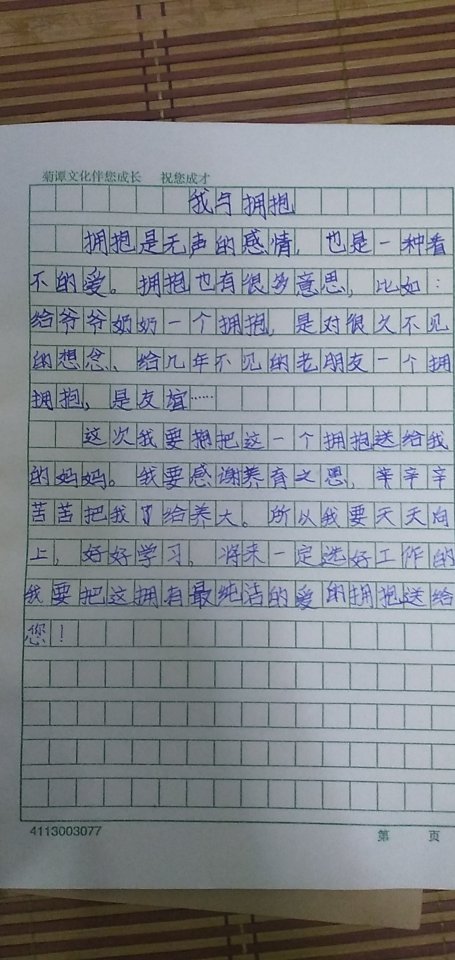 菊谭文化伴您成长 祝您成才
我与拥抱
拥抱是无声的感情，也是一种看
不的爱。拥抱也有很多意思，比如：
给爷爷奶奶一个拥抱，是对很久不见
的想念、给几年不见的老朋友一个拥
拥抱，是友谊……
这次我要想把这一个拥抱送给我
的妈妈。我要感谢养育之恩，辛辛辛
苦苦把我了给养大。所以我要天天向
上，好好学习，将来一定选好工作的
我要把这拥有最纯洁的爱的拥抱送给
您！
4113003077
第 页